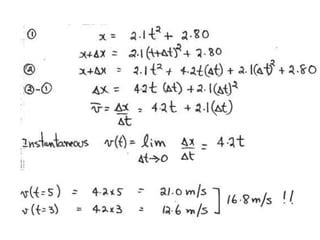 ① x = 2.1t² + 2.80
x+Δx = 2.1(t+Δt)² + 2.80
② x+Δx = 2.1t² + 4.2t(Δt) + 2.1(Δt)² + 2.80
②-① Δx = 4.2t (Δt) + 2.1(Δt)²
v̅ = Δx/Δt = 4.2t + 2.1(Δt)
Instantaneous v(t) = lim Δt→0 Δx/Δt = 4.2t
v(t=5) = 4.2x5 = 21.0 m/s
v(t=3) = 4.2x3 = 12.6 m/s ] 16.8 m/s !!